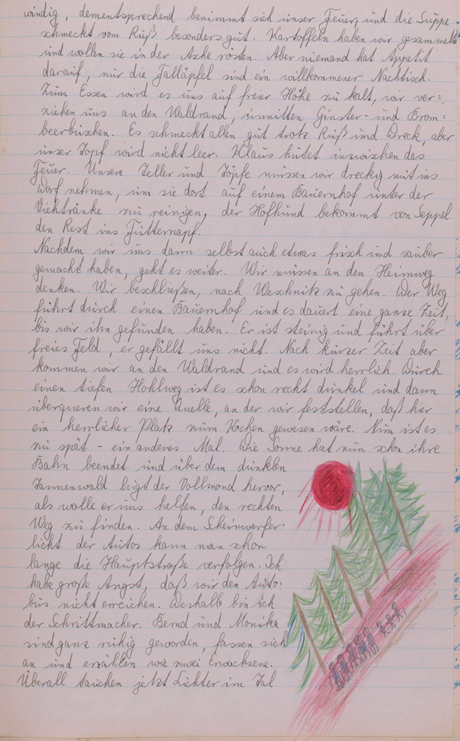 windig, dementsprechend benimmt sich unser Feuer, und die Suppe
schmeckt vom Ruß besonders gut. Kartoffeln haben wir gesammelt
und wollen sie in der Asche rösten. Aber niemand hat Appetit
darauf, nur die Falläpfel sind ein willkommener Nachtisch.
Zum Essen wird es uns auf freier Höhe zu kalt, wir ver-
ziehen uns an den Waldrand, inmitten Ginster- und Brom-
beerbüschen. Es schmeckt allen gut trotz Ruß und Dreck, aber
unser Topf wird nicht leer. Klaus hütet inzwischen das
Feuer. Unsere Teller und Töpfe müssen wir dreckig mit ins
Dorf nehmen, um sie dort auf einem Bauernhof unter der
Viehtränke zu reinigen, der Hofhund bekommt von Seppel
den Rest ins Futternapf.
Nachdem wir uns dann selbst auch etwas frisch und sauber
gemacht haben, geht es weiter. Wir müssen an den Heimweg
denken. Wir beschließen, nach Weschnitz zu gehen. Der Weg
führt durch einen Bauernhof und es dauert eine ganze Zeit,
bis wir ihn gefunden haben. Er ist steinig und führt über
freies Feld, er gefällt uns nicht. Nach kurzer Zeit aber
kommen wir an den Waldrand und es wird herrlich. Durch
einen tiefen Hohlweg ist es schon recht dunkel und dann
überqueren wir eine Quelle, an der wir feststellen, daß hier
ein herrlicher Platz zum Kochen gewesen wäre. Nun ist es
zu spät - ein anderes Mal. Die Sonne hat nun schon ihre
Bahn beendet und über dem dunklen
Tannenwald lugt der Vollmond hervor,
als wolle er uns helfen, den rechten
Weg zu finden. An dem Scheinwerfer-
licht der Autos kann man schon
lange die Hauptstraße verfolgen. Ich
habe große Angst, daß wir den Auto-
bus nicht erreichen. Deshalb bin ich
der Schrittmacher. Bernd und Monika
sind ganz ruhig geworden, fassen sich
an und erzählen wie zwei Erwachsene.
Überall tauchen jetzt Lichter im Tal